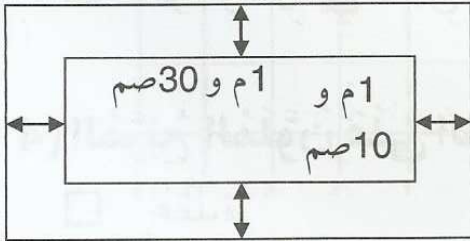 1م و 30صم
1م و
10صم